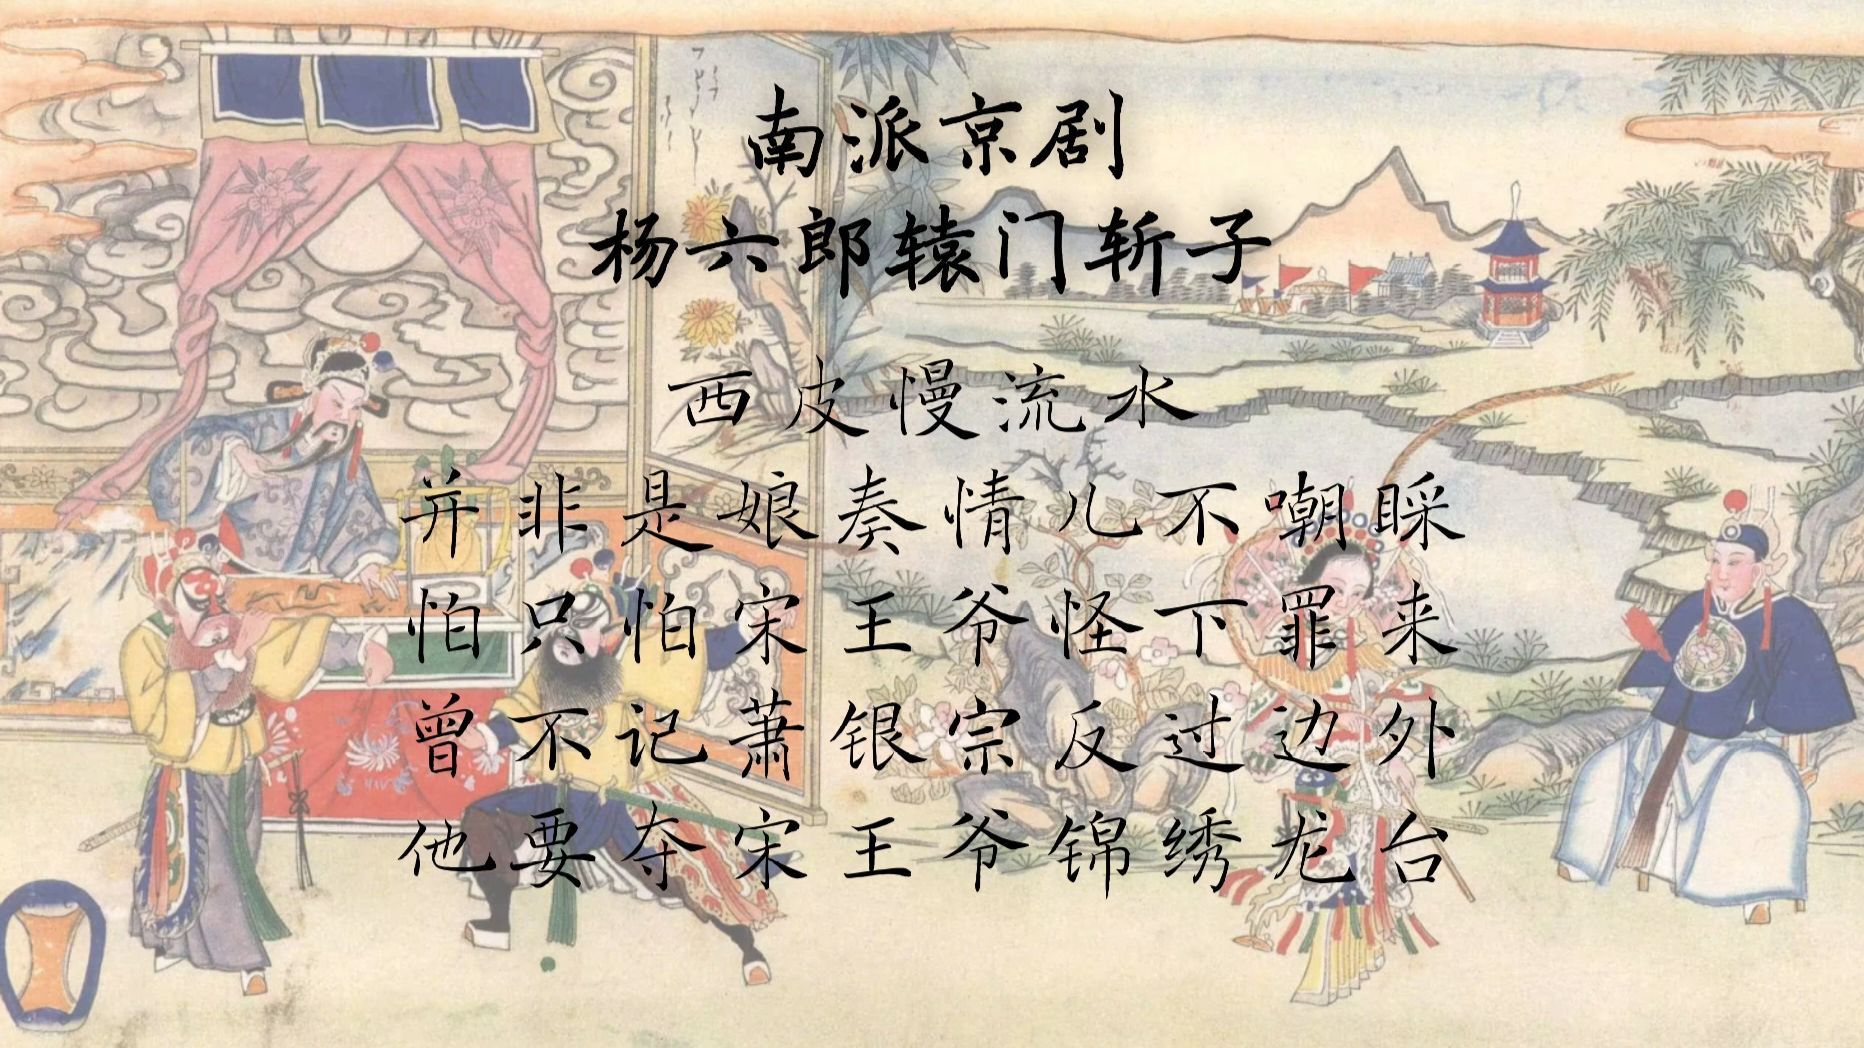 南派京剧
杨六郎辕门斩子
西皮慢流水
并非是娘奏情儿不嘲睬
怕只怕宋王爷怪下罪来
曾不记萧银宗反过边外
他要夺宋王爷锦绣龙台